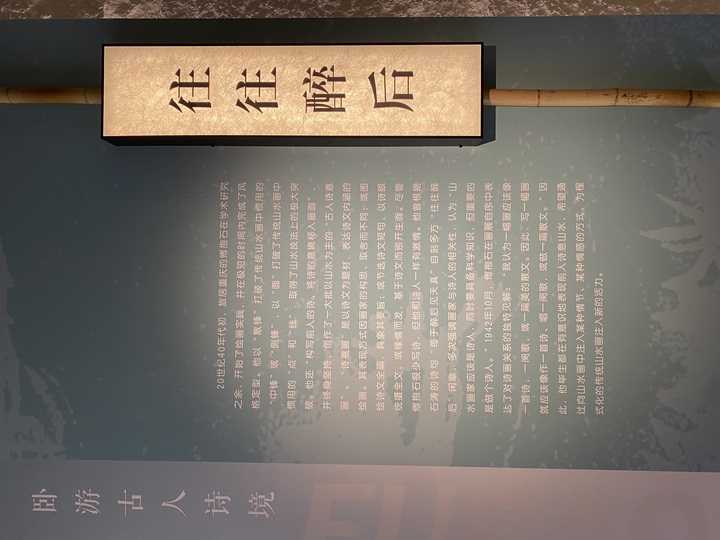 往往醉后
20世纪40年代初，旅居重庆的傅抱石在学术研究
之余，开始了绘画实践，并在极短的时间内完成了风
格定型。他以“散锋”打破了传统山水画中惯用的
“中锋”或“侧锋”，以“面”打破了传统山水画中
惯用的“点”和“线”，取得了山水技法上的极大突
破。他还“构写前人的诗，将诗的意境移入画面”，
并终身坚持，创作了一大批以山水为主的“古人诗意
画”。“诗意画”是以诗文为题材、表达诗文内涵的
绘画。其表现方式因画家的构思、取舍而不同：或图
绘诗文全篇，抽象其要旨；或节选诗文短句，以诗眼
统摄全文；或缘情而发，基于诗文而别开生面。尽管
傅抱石很少写诗，但他和诗人一样有激情。他曾根据
石涛的诗句“每于醉后见天真”自刻多方“往往醉
后”闲章，多次强调画家与诗人的相关性，认为“山
水画家应该是诗人，同时要具备科学知识，但重要的
是做个诗人。”1942年10月，傅抱石在画展自序中表
达了对诗画关系的独特见解：“我认为一幅画应该像
一首诗、一阕歌，或一篇美的散文。因此，写一幅画
就应该像作一首诗、唱一阕歌，或做一篇散文。”因
此，他毕生都在有意识地表现前人诗意山水，希望通
过向山水画中注入某种情节、某种情感的方式，为程
式化的传统山水画注入新的活力。
卧游古人诗境